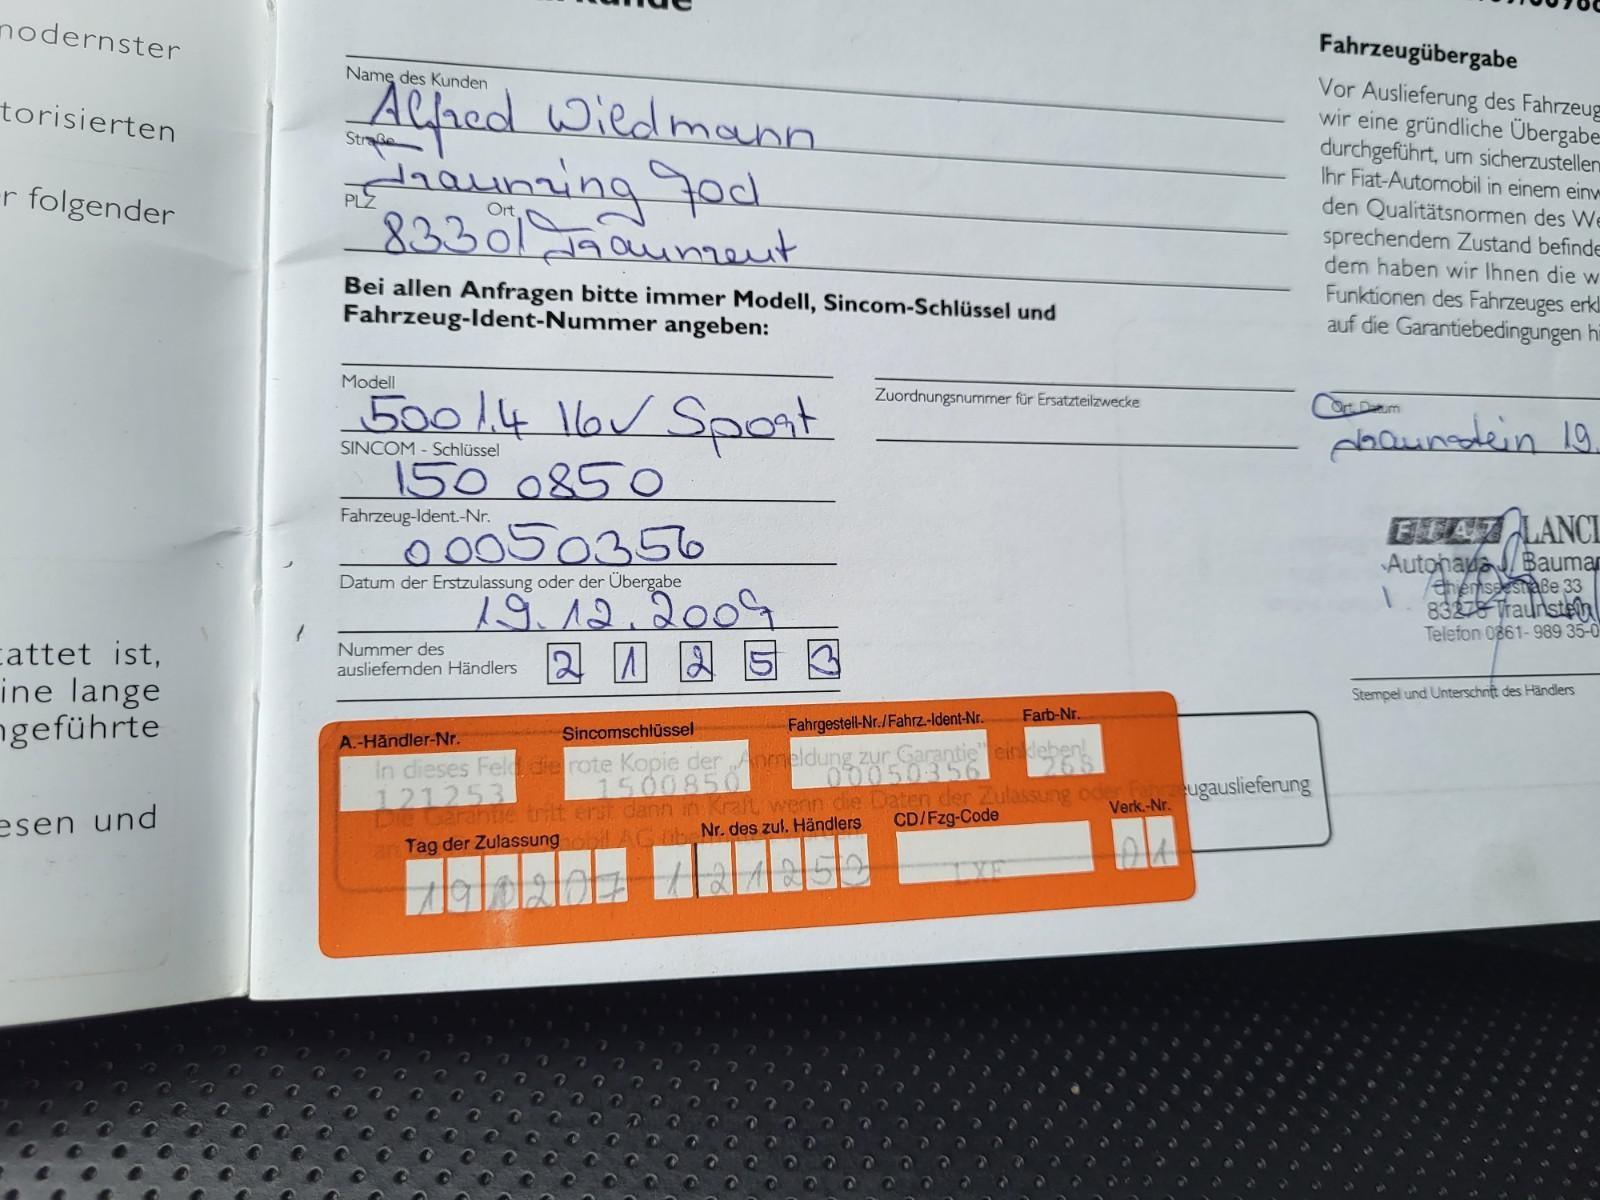 modernster
torisierten
r folgender
attet ist,
ine lange
ngeführte
esen und
Name des Kunden
Alfred Wiedmann
Straße
Traunring 90d
PLZ Ort
83301 Traunreut
Bei allen Anfragen bitte immer Modell, Sincom-Schlüssel und
Fahrzeug-Ident-Nummer angeben:
Modell
500 1.4 16v Sport
SINCOM - Schlüssel
150 0850
Fahrzeug-Ident.-Nr.
00050356
Datum der Erstzulassung oder der Übergabe
Nummer des
ausliefernden Händlers 2 1 2 5 3
Zuordnungsnummer für Ersatzteilzwecke
A.-Händler-Nr. Sincomschlüssel Fahrgestell-Nr./Fahrz.-Ident-Nr. Farb-Nr.
In dieses Feld die rote Kopie der „Anmeldung zur Garantie" einkleben!
121253 1500850 00050356 268
Die Garantie tritt erst dann in Kraft, wenn die Daten der Zulassung oder Fahrzeugauslieferung
Tag der Zulassung Nr. des zul. Händlers CD/Fzg-Code Verk.-Nr.
190207 121253 LXF 01
Fahrzeugübergabe
Vor Auslieferung des Fahrzeug
wir eine gründliche Übergabe
durchgeführt, um sicherzustellen
Ihr Fiat-Automobil in einem einw
den Qualitätsnormen des We
sprechendem Zustand befinde
dem haben wir Ihnen die w
Funktionen des Fahrzeuges erkl
auf die Garantiebedingungen hi
Ort, Datum
Traunstein 19.
FIAT LANCI
Autohaus Bauma
Chiemseestraße 33
83278 Traunstein
Telefon 0861- 989 35-0
Stempel und Unterschrift des Händlers